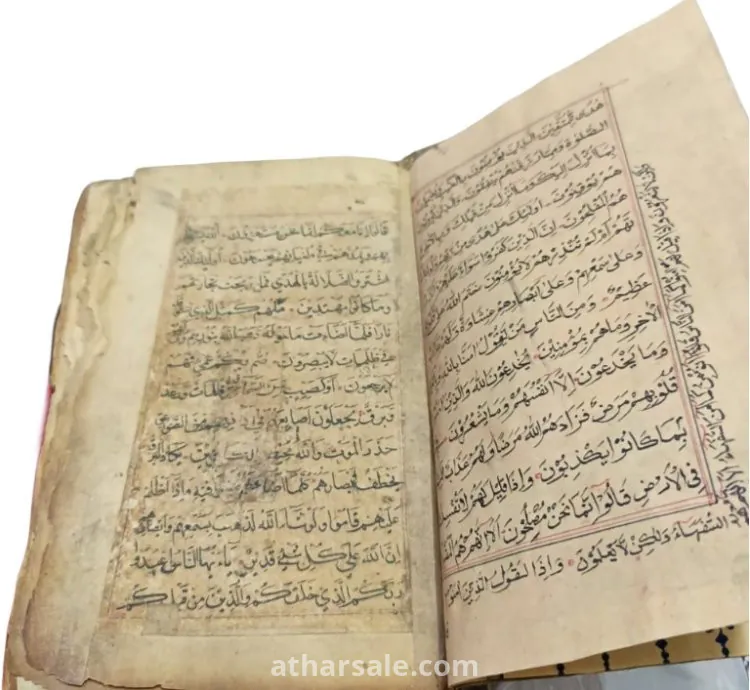 هدى للمتقين الذين يؤمنون بالغيب
الصلوة ومما رزقناهم ينفقون والذين يؤمنون
بما انزل اليك وما انزل من قبلك وبالآخرة
هم يوقنون اولئك على هدى من ربهم
هم المفلحون ان الذين كفروا سواء عليهم
تهم ام لم تنذرهم لا يؤمنون ختم الله
وعلى سمعهم وعلى ابصارهم غشاوة ولهم
عظيم ومن الناس من يقول امنا بالله
الآخر وما هم بمؤمنين يخدعون الله والذين
وما يخدعون الا انفسهم وما يشعرون
قلوبهم مرض فزادهم الله مرضا ولهم عذاب
بما كانوا يكذبون واذا قيل لهم لا تفسد
في الارض قالوا انما نحن مصلحون الا انهم هم
السفهاء ولكن لا يعلمون واذا لقوا الذين امنوا
قالوا انا معكم انما نحن مستهزؤن
يهم ويمدهم في طغيانهم يعمهون اولئك الذين
اشتروا الضلالة بالهدى فما ربحت تجارتهم
وما كانوا مهتدين مثلهم كمثل الذي
نارا فلما اضاءت ما حوله ذهب الله بنورهم
في ظلمات لا يبصرون صم بكم عمي فهم
لا يرجعون او كصيب من السماء فيه ظلمات ورعد
وبرق يجعلون اصابعهم في من الصواعق
حذر الموت والله محيط بالكافرين يكاد البرق
يخطف ابصارهم كلما اضاء لهم فيه واذا اظلم
عليهم قاموا ولو شاء الله لذهب بسمعهم وابصارهم
ان الله على كل شيء قدير ياءيها الناس اعبدوا
ربكم الذي خلقكم والذين من قبلكم
atharsale.com